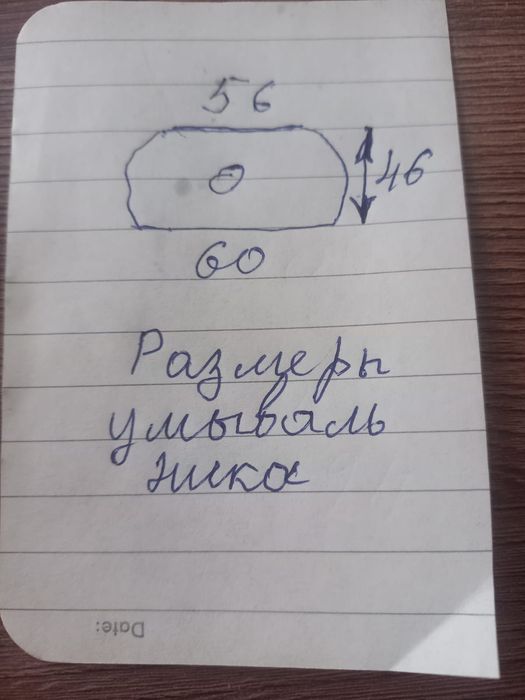 56
46
60
Размеры
умываль
ника
Date: